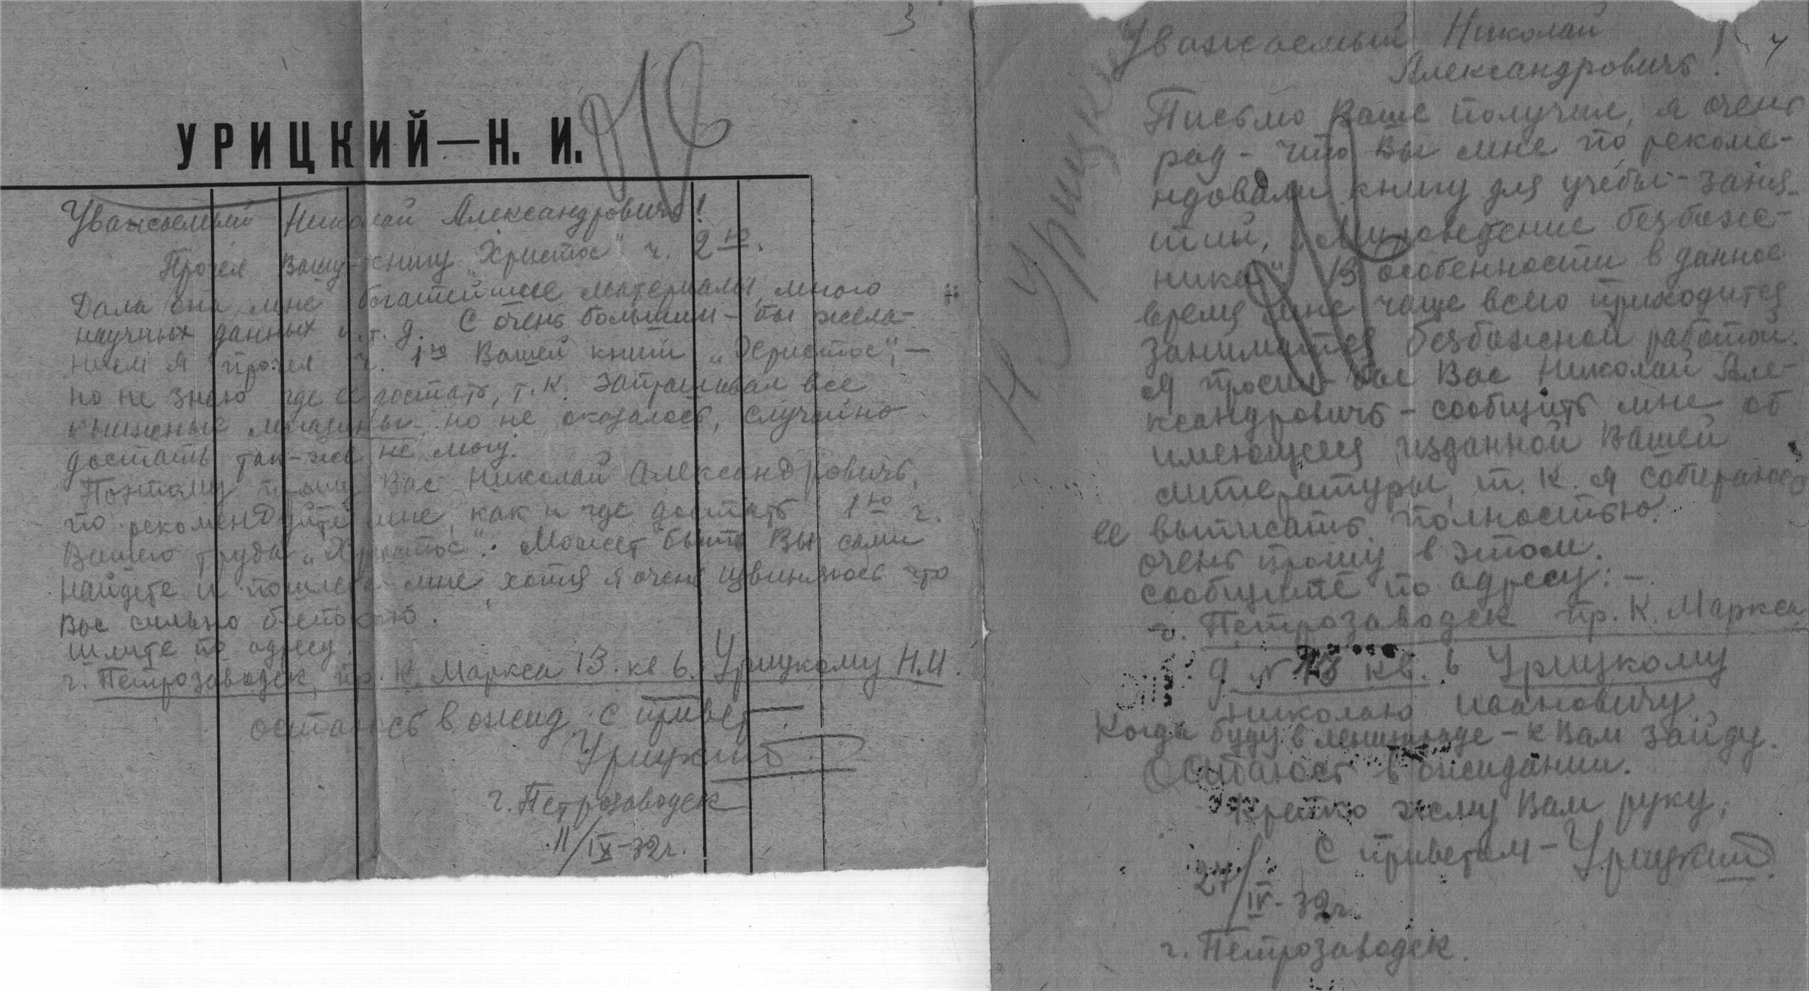 3
УРИЦКИЙ—Н. И.
Уважаемый Николай Александровичь!
Прочел Вашу книгу „Христос" ч. 2ю.
Дала она мне богатейшие материалы, много
научных данных и. т. д. С очень большим-бы жела-
нием я прочел ч. 1ю Вашей книги „Христос", —
но не знаю где её достать, т. к. запрашивал все
книжные магазины, но не оказалось, случайно
достать так-же не могу.
Поэтому прошу Вас Николай Александровичь,
по рекомендуйте мне, как и где достать 1ю ч.
Вашего труда „Христос". Может быть Вы сами
найдете и пошлете мне, хотя я очень извиняюсь что
Вас сильно беспокою.
шлите по адресу
г. Петрозаводск, пр. К. Маркса 13. кв 6. Урицкому Н.И.
остаюсь в ожид. С привет
Урицкий
г. Петрозаводск
11/IX-32г.
4
Уважаемый Николай
Александровичь!
Письмо Ваше получил, я очень
рад - что Вы мне по рекоме-
ндовали книгу для учебы-заня-
тий, безбож-
ника". В особенности в данное
время мне чаще всего приходится
заниматся безбожной работой.
Я просил-бы Вас Николай Але-
ксандровичь - сообщить мне об
имеющееся изданной Вашей
литературы, т. к. я собираюсь
ее выписать полностью.
очень прошу в этом.
сообщите по адресу: —
г. Петрозаводск пр. К. Маркса
д N 13 кв. 6 Урицкому
Николаю Ивановичу.
Когда буду в Ленинграде - к Вам зайду.
Остаюсь в ожидании.
Крепко жму Вам руку.
С приветом - Урицкий
27/IV-32г.
г. Петрозаводск.
Н Урицкий